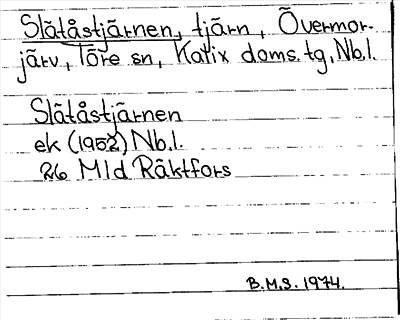 Slätåstjärnen, tjärn, Övermor-
järv, Töre sn, Kalix doms. tg, Nb.l.
Slätåstjärnen
ek (1952) Nb.l.
26 Mld Räktfors
B.M.S. 1974.